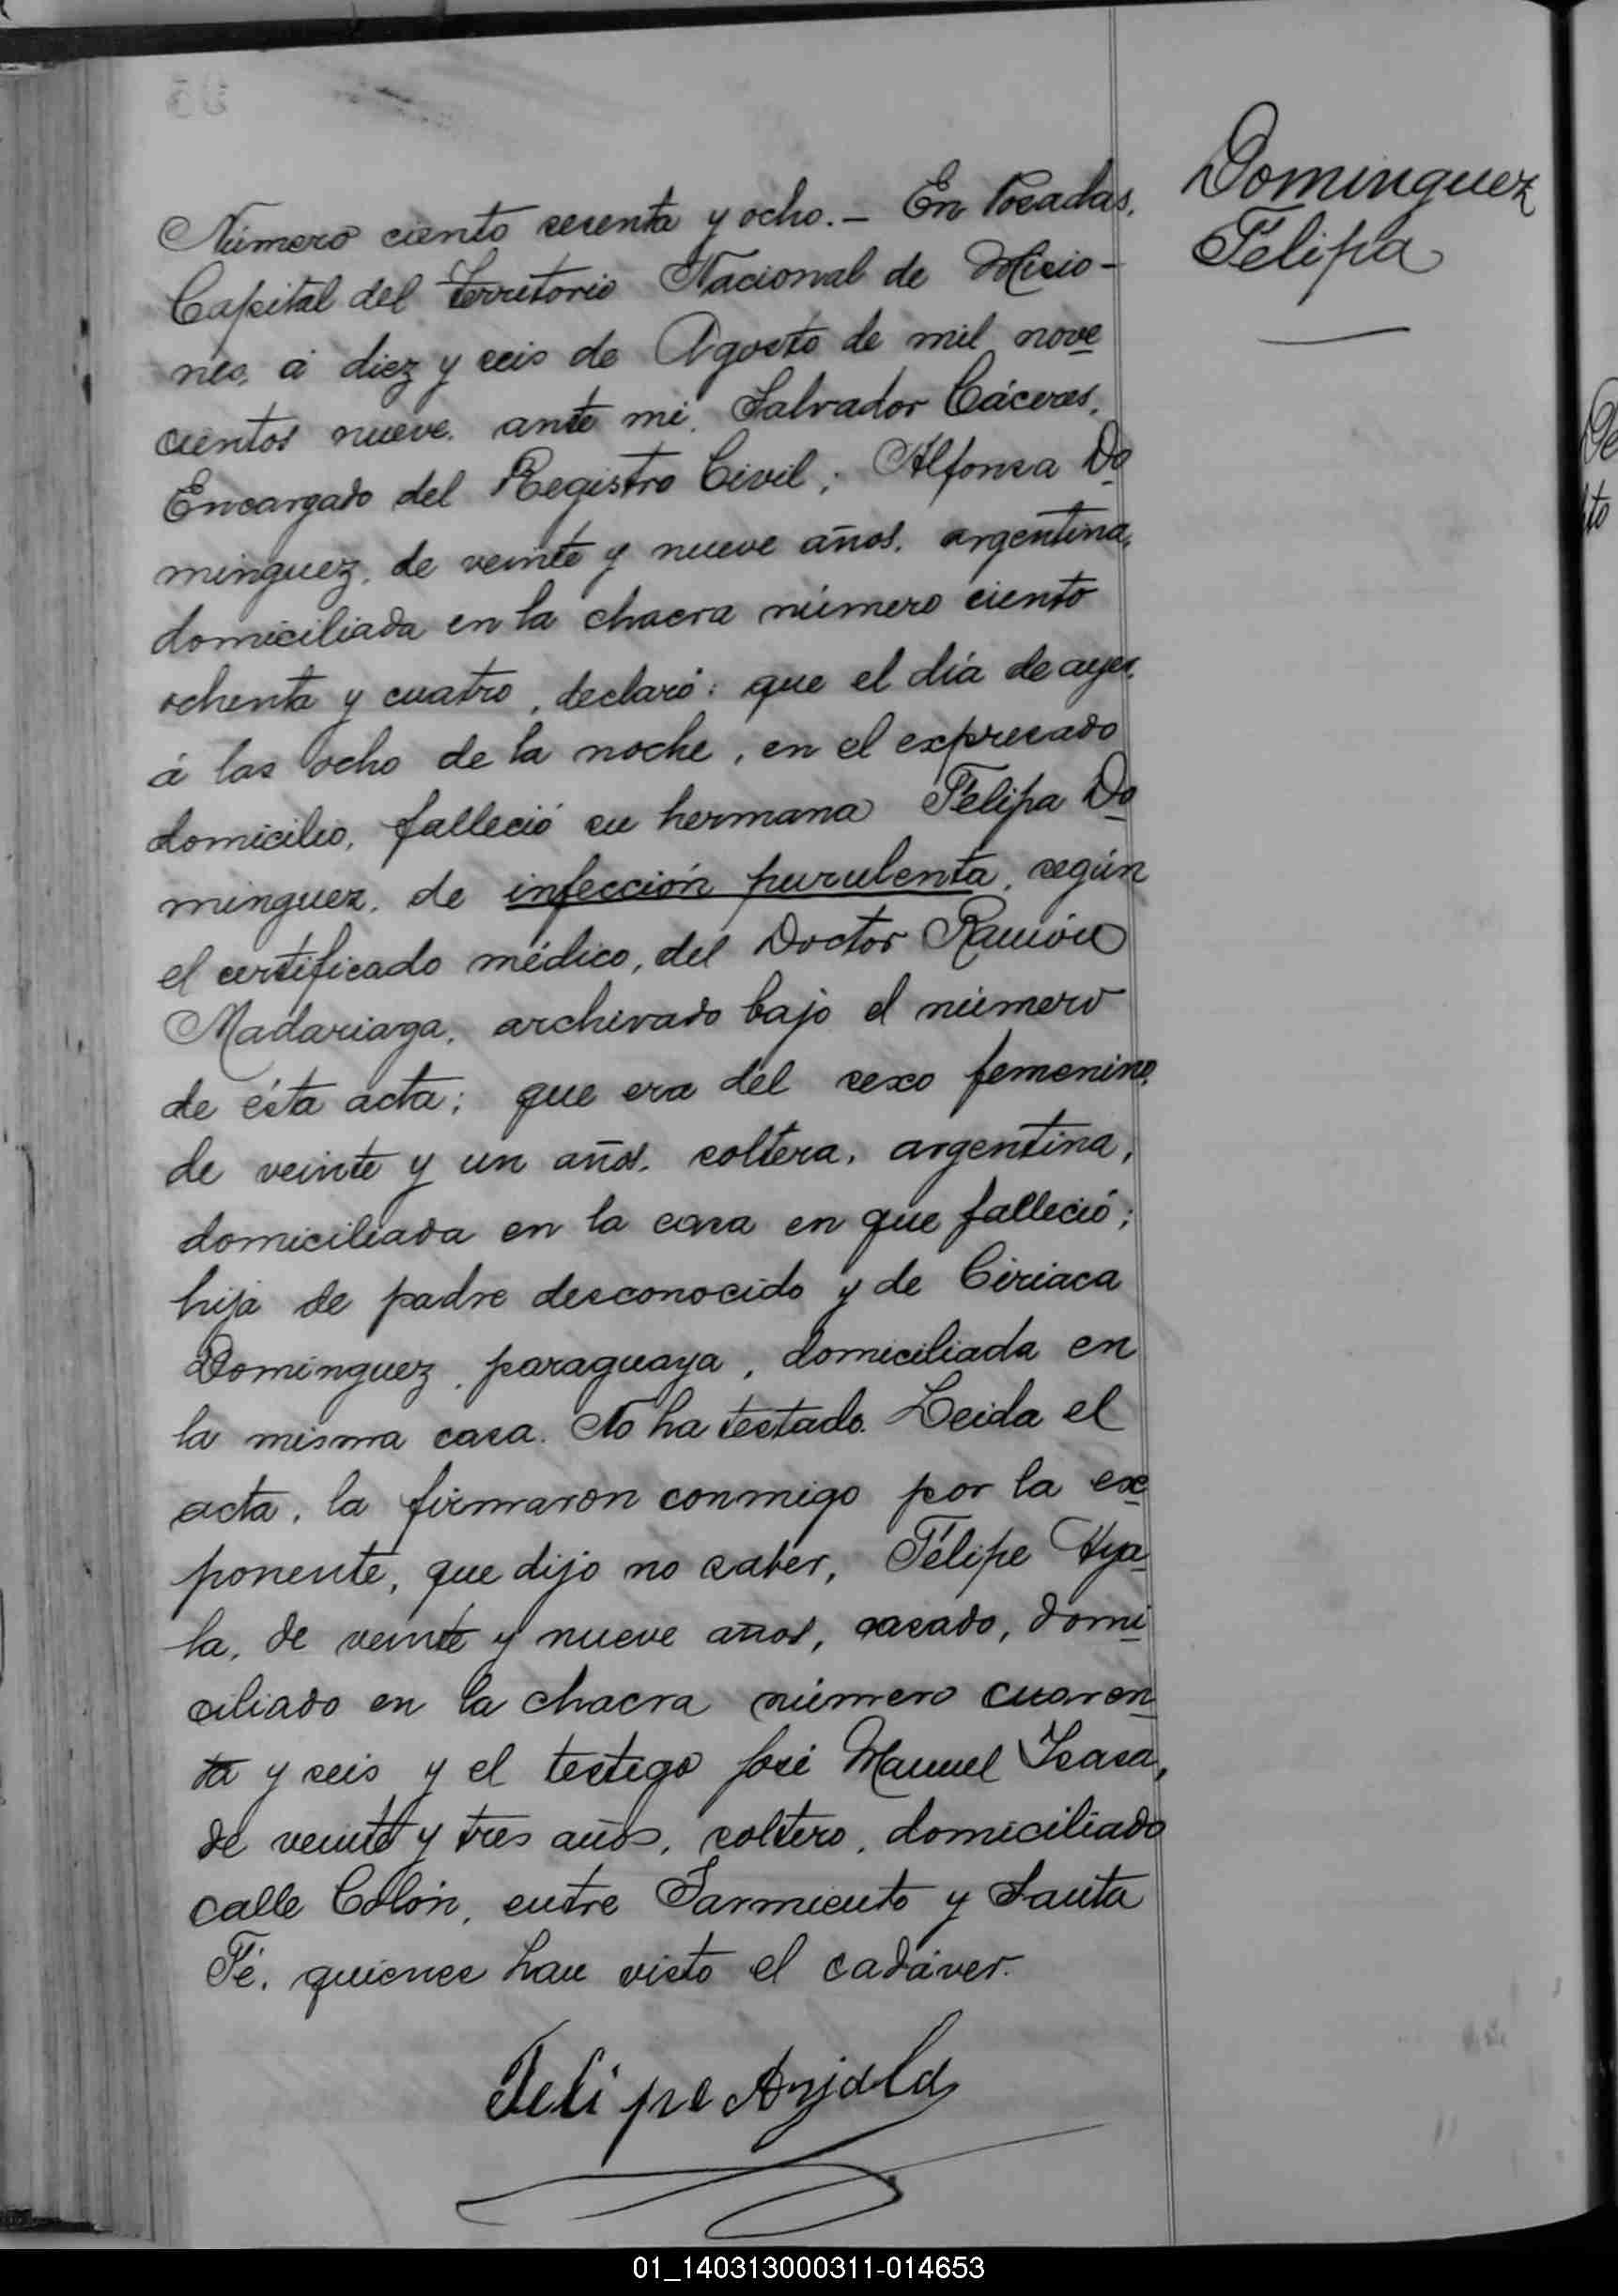 Dominguez
Felipa
Número ciento sesenta y ocho. – En Posadas,
Capital del Territorio Nacional de Misio-
nes, á diez y seis de Agosto de mil nove
cientos nueve, ante mi, Salvador Cáceres,
Encargado del Registro Civil; Alfonsa Do
minguez, de veinte y nueve años, argentina,
domiciliada en la chacra número ciento
ochenta y cuatro, declaró: que el día de ayer,
á las ocho de la noche, en el expresado
domicilio, falleció su hermana Felipa Do
minguez, de infección purulenta, según
el certificado médico, del Doctor Ramón
Madariaga, archivado bajo el número
de ésta acta; que era del sexo femenino,
de veinte y un años, soltera, argentina,
domiciliada en la casa en que falleció;
hija de padre desconocido y de Ciriaca
Dominguez, paraguaya, domiciliada en
la misma casa. No ha testado. Leida el
acta, la firmaron conmigo por la ex
ponente, que dijo no saber, Felipe Aya
la, de veinte y nueve años, casado, domi
ciliado en la chacra número cuaren
ta y seis y el testigo José Manuel Isasa,
de veinte y tres años, soltero, domiciliado
calle Colón, entre Sarmiento y Santa
Fé, quienes han visto el cadáver.
Felipe Ayala
01_140313000311-014653